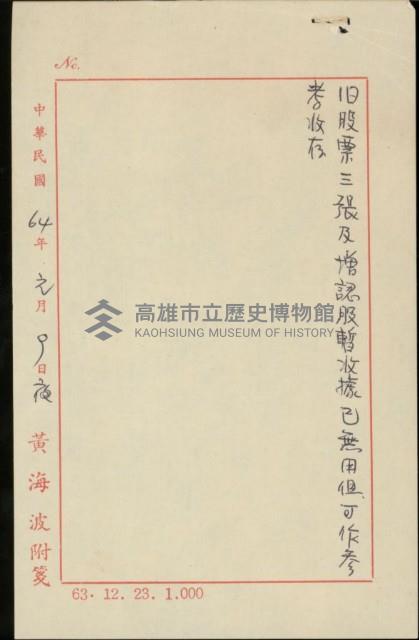 No.
旧股票三張及增認股暫收據已無用但可作參
考收存
中華民國64年元月9日夜 黃海波附箋
高雄市立歷史博物館
KAOHSIUNG MUSEUM OF HISTORY
63. 12. 23. 1.000